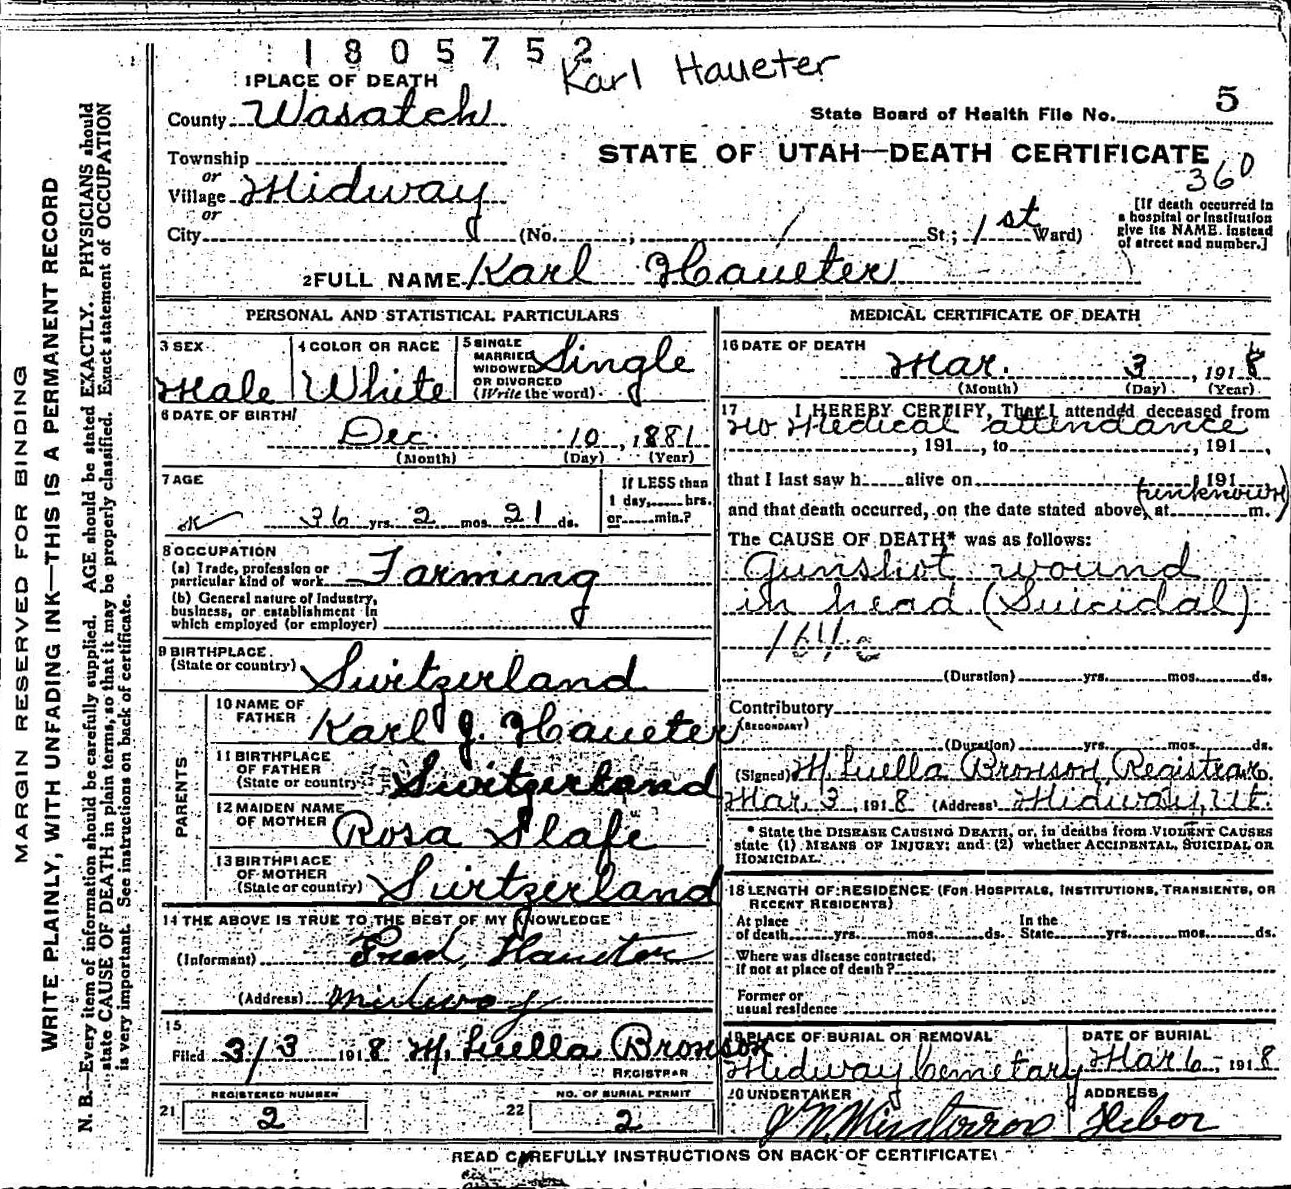 1805752
Karl Haueter
1 PLACE OF DEATH
County Wasatch
State Board of Health File No. 5
Township
STATE OF UTAH—DEATH CERTIFICATE
360
or
Village Midway
or
City (No. ; / St; 1st Ward)
[If death occurred in
a hospital or institution
give its NAME. instead
of street and number.]
2 FULL NAME Karl Haueter
PERSONAL AND STATISTICAL PARTICULARS
3 SEX
Male
4 COLOR OR RACE
White
5 SINGLE
MARRIED
WIDOWED
OR DIVORCED
(Write the word)
Single
6 DATE OF BIRTH
Dec. 10, 1881
(Month) (Day) (Year)
7 AGE
36 yrs. 2 mos. 21 ds.
If LESS than
1 day, hrs.
or min.?
8 OCCUPATION
(a) Trade, profession or
particular kind of work Farming
(b) General nature of Industry,
business, or establishment in
which employed (or employer)
9 BIRTHPLACE
(State or country) Switzerland
PARENTS
10 NAME OF
FATHER Karl J. Haueter
11 BIRTHPLACE
OF FATHER
(State or country) Switzerland
12 MAIDEN NAME
OF MOTHER Rosa Slafe
13 BIRTHPLACE
OF MOTHER
(State or country) Switzerland
14 THE ABOVE IS TRUE TO THE BEST OF MY KNOWLEDGE
(Informant) Fred, Haueter
(Address) Midway
15
Filed 3/3 1918 M. Luella Bronson
REGISTRAR
21 REGISTERED NUMBER
2
22 NO. OF BURIAL PERMIT
2
MEDICAL CERTIFICATE OF DEATH
16 DATE OF DEATH
Mar. 3, 1918
(Month) (Day) (Year)
17 I HEREBY CERTIFY, That I attended deceased from
no Medical attendance
, 191 , to , 191 ,
that I last saw h alive on , 191
(unknown)
and that death occurred, on the date stated above, at m.
The CAUSE OF DEATH* was as follows:
Gunshot wound
in head (Suicidal)
(Duration) yrs. mos. ds.
Contributory
(SECONDARY)
(Duration) yrs. mos. ds.
(Signed) M. Luella Bronson Registrar.
Mar. 3, 1918 (Address) Midway, Ut.
* State the DISEASE CAUSING DEATH, or, in deaths from VIOLENT CAUSES
state (1) MEANS OF INJURY; and (2) whether ACCIDENTAL, SUICIDAL OR
HOMICIDAL.
18 LENGTH OF RESIDENCE (FOR HOSPITALS, INSTITUTIONS, TRANSIENTS, OR
RECENT RESIDENTS)
At place In the
of death yrs. mos. ds. State yrs. mos. ds.
Where was disease contracted,
if not at place of death?
Former or
usual residence
19 PLACE OF BURIAL OR REMOVAL
Midway Cemetary
DATE OF BURIAL
Mar 6, 1918
20 UNDERTAKER
ADDRESS
Heber
READ CAREFULLY INSTRUCTIONS ON BACK OF CERTIFICATE
MARGIN RESERVED FOR BINDING
WRITE PLAINLY, WITH UNFADING INK—THIS IS A PERMANENT RECORD
N. B.—Every item of information should be carefully supplied. AGE should be stated EXACTLY. PHYSICIANS should
state CAUSE OF DEATH in plain terms, so that it may be properly classified. Exact statement of OCCUPATION
is very important. See instructions on back of certificate.